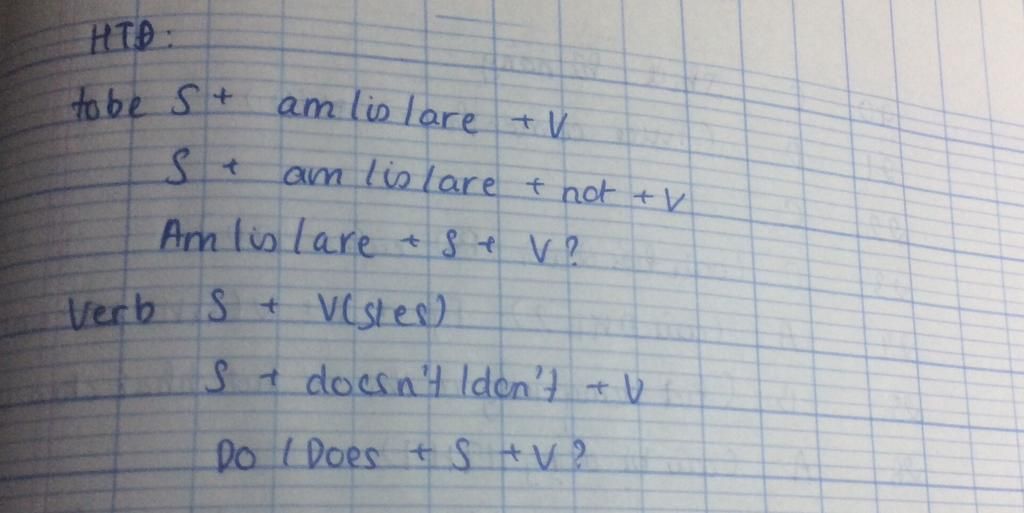 HTĐ:
to be S + am / is / are + V
S + am / is / are + not + V
Am / is / are + S + V?
Verb S + V(s/es)
S + doesn't / don't + V
Do / Does + S + V?